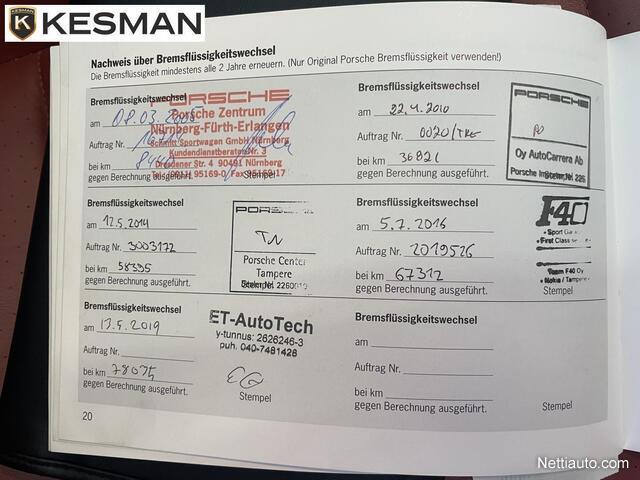 KESMAN
Nachweis über Bremsflüssigkeitswechsel
Die Bremsflüssigkeit mindestens alle 2 Jahre erneuern. (Nur Original Porsche Bremsflüssigkeit verwenden!)
Bremsflüssigkeitswechsel
am 08.03.2005
Auftrag Nr.
bei km
gegen Berechnung ausgeführt. Stempel
PORSCHE
Porsche Zentrum
Nürnberg-Fürth-Erlangen
Schmitt Sportwagen GmbH Nürnberg
Kundendienstberater Nr. 3
Dresdener Str. 4 90491 Nürnberg
Bremsflüssigkeitswechsel
am 22.4.2010
Auftrag Nr. 0020/
bei km 36821
gegen Berechnung ausgeführt. Stempel
PORSCHE
Oy AutoCarrera Ab
Bremsflüssigkeitswechsel
am 12.5.2014
Auftrag Nr. 3003172
bei km 58395
gegen Berechnung ausgeführt. Stempel
PORSCHE
TN
Porsche Center
Tampere
Bremsflüssigkeitswechsel
am 5.7.2016
Auftrag Nr. 2019526
bei km 67312
gegen Berechnung ausgeführt. Stempel
F40
Team F40 Oy
Nokia / Tampere
Bremsflüssigkeitswechsel
am 13.5.2019
Auftrag Nr.
bei km 78095
gegen Berechnung ausgeführt. Stempel
ET-AutoTech
y-tunnus: 2626246-3
puh. 040-7481428
Bremsflüssigkeitswechsel
am
Auftrag Nr.
bei km
gegen Berechnung ausgeführt. Stempel
20
Nettiauto.com